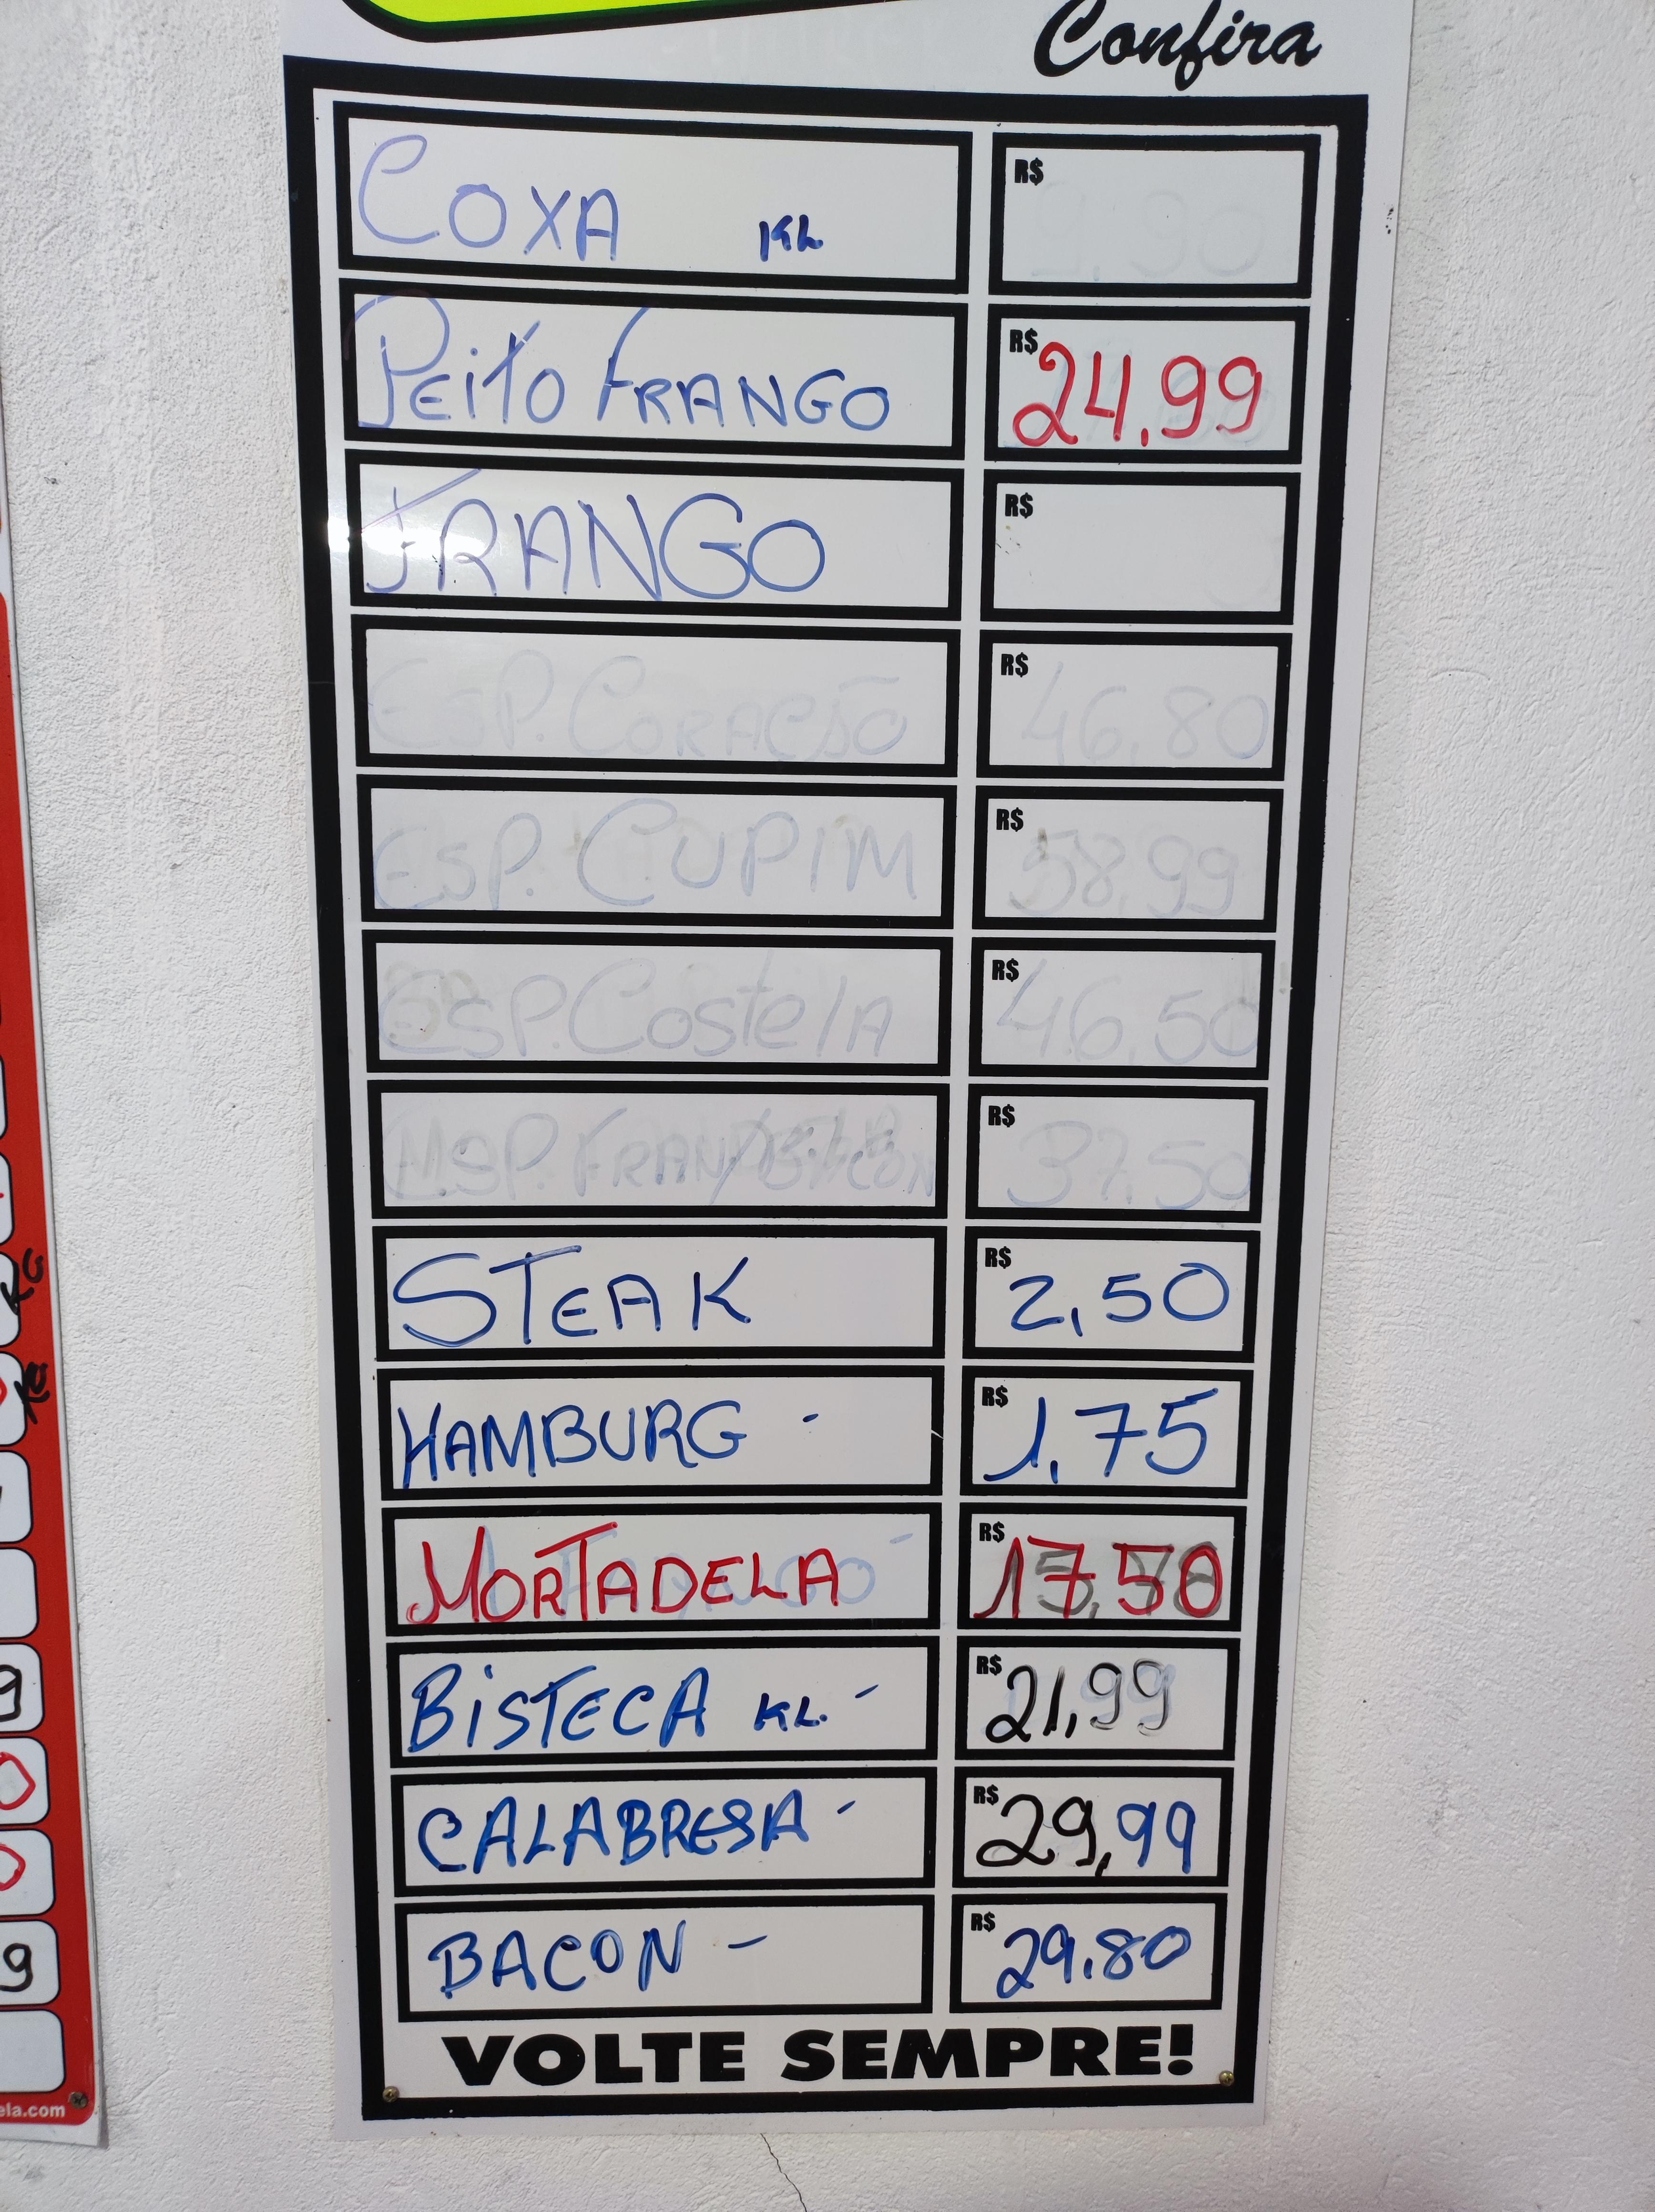 Confira
COXA KL R$
PEITO FRANGO R$ 24,99
FRANGO R$
ESP. CORAÇÃO R$ 46,80
ESP. CUPIM R$ 58,99
ESP. Costela R$ 46,50
ESP. FRAN/BACON R$ 37,50
STEAK R$ 2,50
HAMBURG - R$ 1,75
MORTADELA R$ 17,50
BISTECA KL. - R$ 21,99
CALABRESA - R$ 29,99
BACON - R$ 29.80
VOLTE SEMPRE!
ela.com